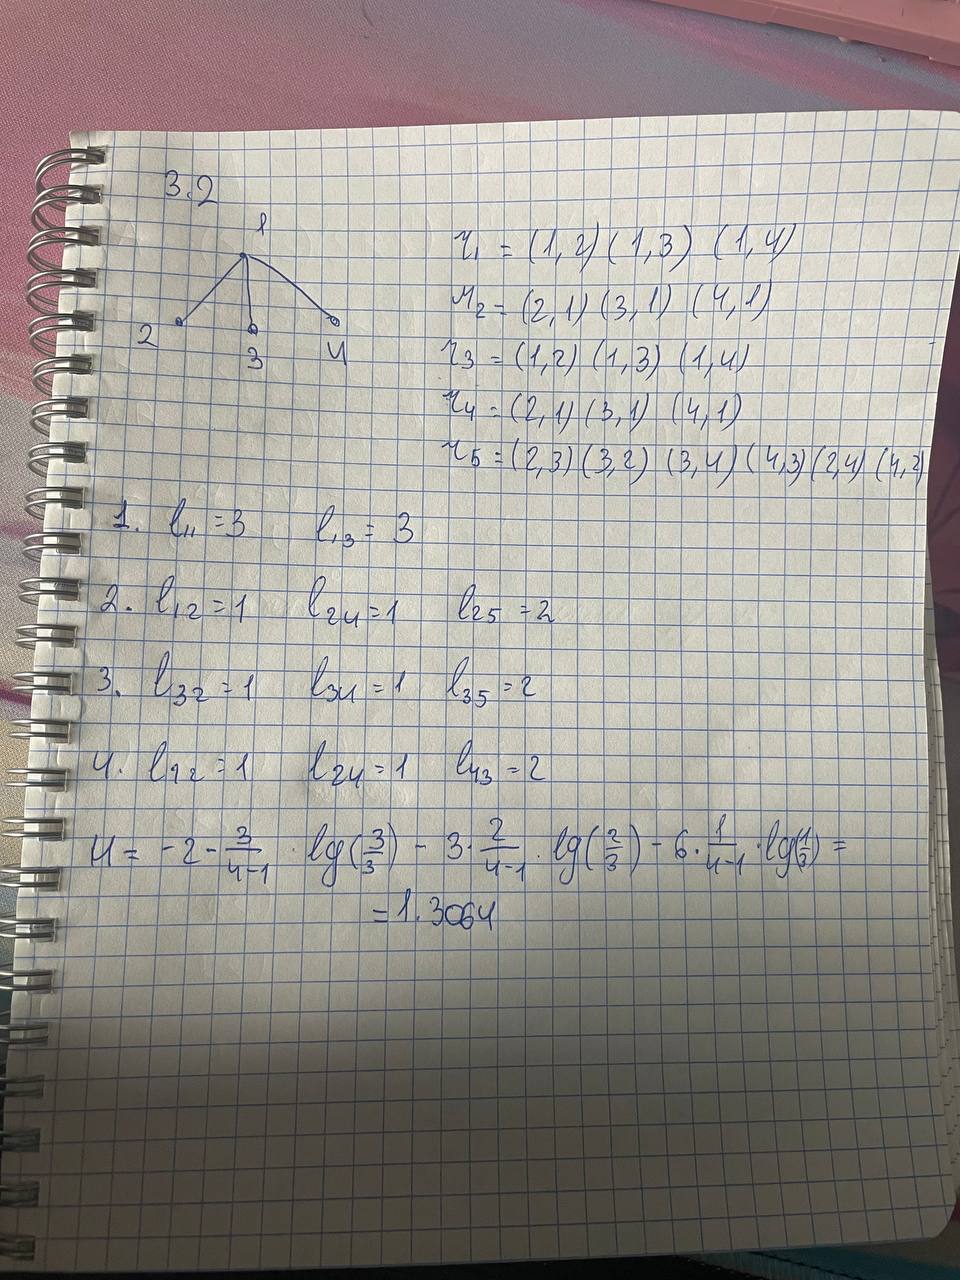 3.2
1
2
3
4
r₁ = (1,2) (1,3) (1,4)
r₂ = (2,1) (3,1) (4,1)
r₃ = (1,2) (1,3) (1,4)
r₄ = (2,1) (3,1) (4,1)
r₅ = (2,3) (3,2) (3,4) (4,3) (2,4) (4,2)
1. l₁₁ = 3 l₁₃ = 3
2. l₁₂ = 1 l₂₄ = 1 l₂₅ = 2
3. l₃₂ = 1 l₃₄ = 1 l₃₅ = 2
4. l₂₂ = 1 l₂₄ = 1 l₄₃ = 2
H = -2 - 3/(4-1) · lg(3/3) - 3 · 2/(4-1) · lg(2/3) - 6 · 1/(4-1) · lg(1/3) =
= 1.3064